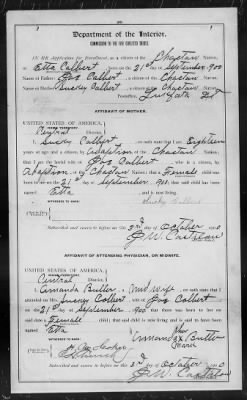 Department of the Interior.
COMMISSION TO THE FIVE CIVILIZED TRIBES.
IN RE Application for Enrollment, as a citizen of the Choctaw Nation,
of Etta Colbert, born on the 21st day of September, 1900
Name of Father: Gov Colbert, a citizen of the Choctaw Nation.
Name of Mother: Lucey Colbert, a citizen of the Choctaw Nation.
AFFIDAVIT OF MOTHER.
UNITED STATES OF AMERICA,
INDIAN TERRITORY,
Central District.
I, Lucey Colbert, on oath state that I am Eighteen
years of age and a citizen by Adoption, of the Choctaw Nation;
that I am the lawful wife of Gov Colbert, who is a citizen, by
Adoption of Choctaw Nation; that a Female child was
born to me on 21st day of September, 1900, that said child has been
named Etta, and is now living.
Subscribed and sworn to before me this 2nd day of October
AFFIDAVIT OF ATTENDING PHYSICIAN, OR MIDWIFE.
UNITED STATES OF AMERICA,
INDIAN TERRITORY,
Central District.
I, Amanda Butler, a Mid wife, on oath state that I
attended on Mrs. Lucey Colbert, wife of Gov Colbert on
the 21st day of September, 1900, that there was born to her on said
date a Female child; that said child is now living and is said to have been
named Etta
her
x Butler
mark
Subscribed and sworn to before me this 2nd day of October